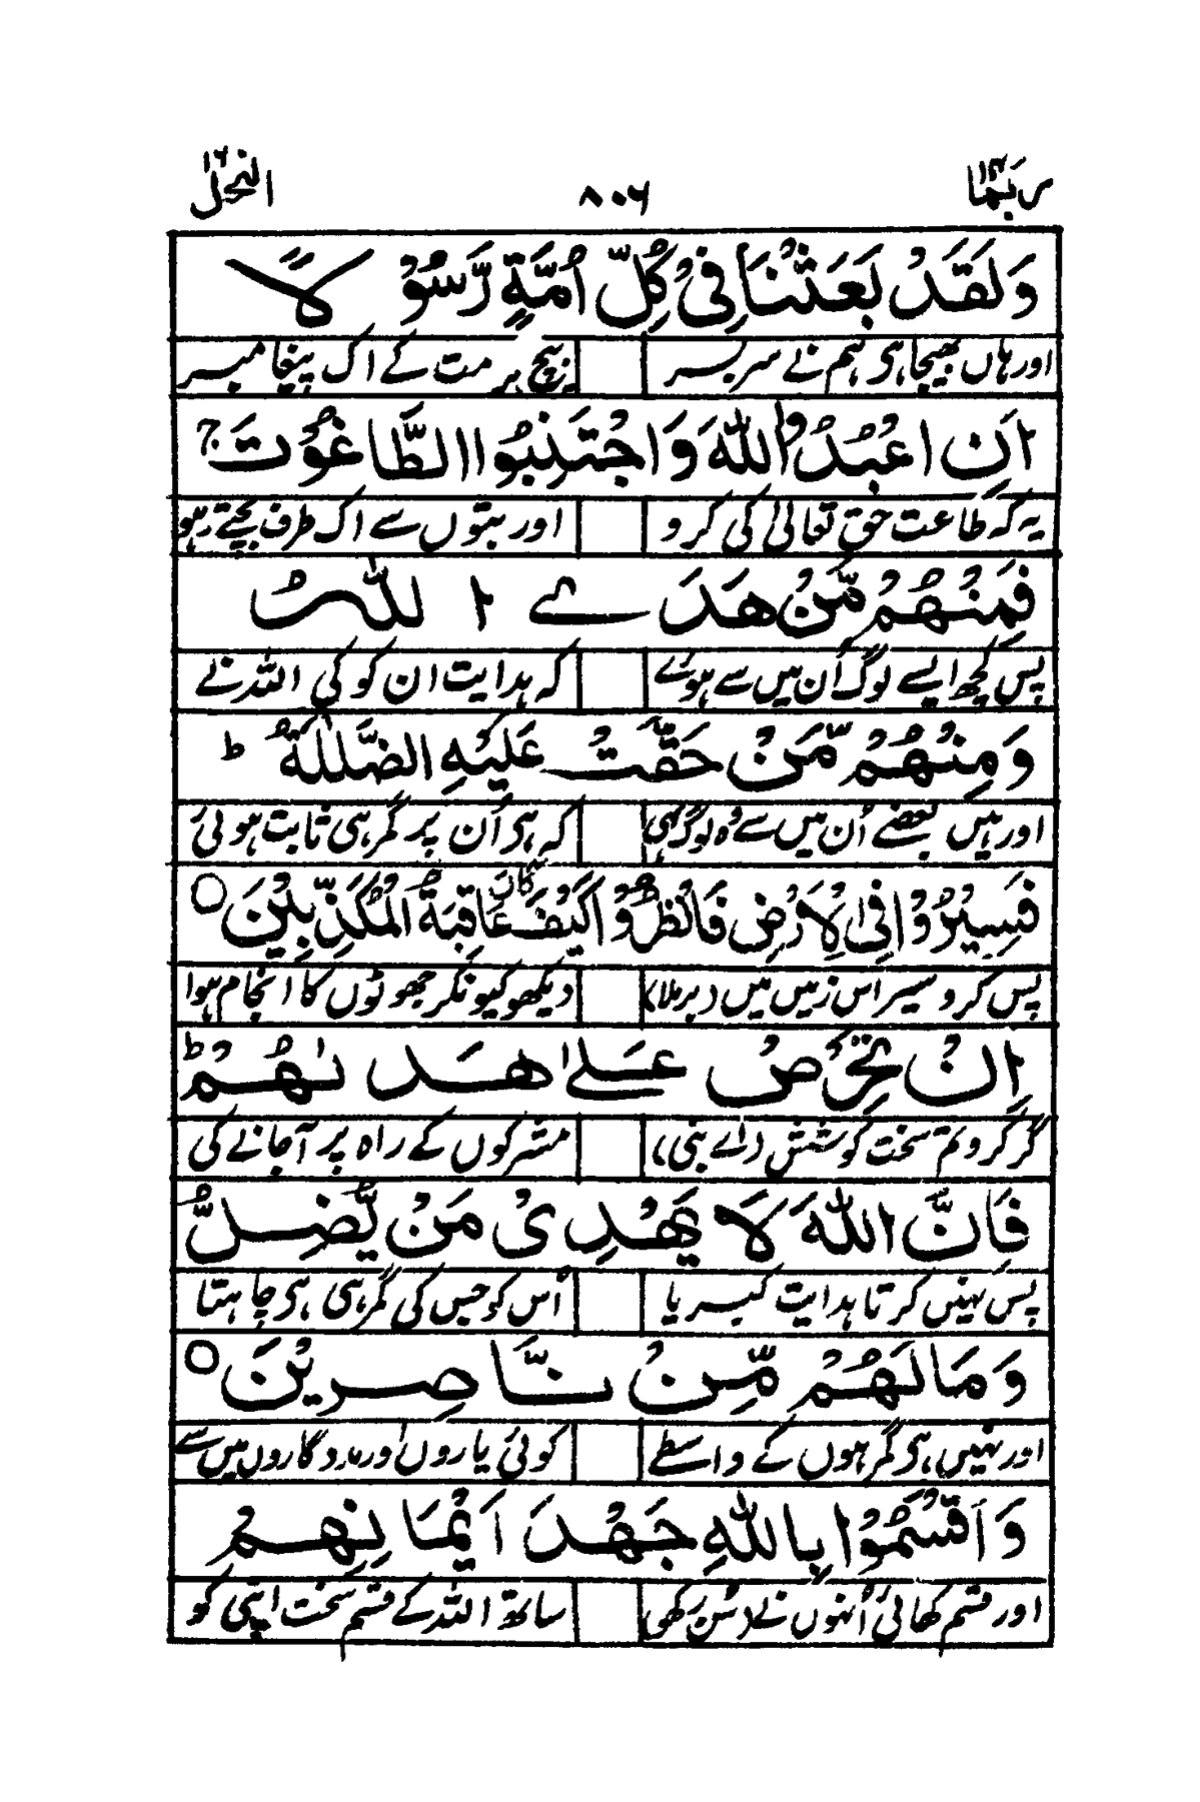 ربما ۱۴ ۸۰۶ النحل ۱۶
وَلَقَدْ بَعَثْنَا فِیْ كُلِّ اُمَّةٍ رَّسُوْلًا
اور ہاں بھیجا ہی ہم نے سر بسر بیچ ہر امت کے اک پیغامبر
اَنِ اعْبُدُوا اللّٰهَ وَاجْتَنِبُوا الطَّاغُوْتَ ج
یہ کہ طاعت حق تعالیٰ کی کرو اور بتوں سے اک طرف بچتے رہو
فَمِنْهُمْ مَّنْ هَدَی اللّٰهُ
پس کچھ ایسے لوگ اُن میں سے ہوئے کہ ہدایت ان کو کی اللہ نے
وَمِنْهُمْ مَّنْ حَقَّتْ عَلَیْهِ الضَّلٰلَةُ ط
اور ہیں بعضے اُن میں سے وہ لوگ ہی کہ ہی اُن پر گمرہی ثابت ہوئی
فَسِیْرُوْا فِی الْاَرْضِ فَانْظُرُوْا كَیْفَ كَانَ عَاقِبَةُ الْمُكَذِّبِیْنَ ○
پس کرو سیر اس زمیں میں (برملا) دیکھو کیونکر جھوٹوں کا انجام ہوا
اِنْ تَحْرِصْ عَلٰی هُدٰىهُمْ ط
گر کرو تم سخت کوشش (اے نبی) مشرکوں کے راہ پر آجانے کی
فَاِنَّ اللّٰهَ لَا یَهْدِیْ مَنْ یُّضِلُّ
پس نہیں کرتا ہدایت کبریا اُس کو جس کی گمرہی ہی چاہتا
وَمَا لَهُمْ مِّنْ نَّاصِرِیْنَ ○
اور نہیں ہی گمرہوں کے واسطے کوئی یاروں اور مددگاروں میں سے
وَاَقْسَمُوْا بِاللّٰهِ جَهْدَ اَیْمَانِهِمْ
اور قسم کھائی اُنہوں نے سات اللہ کے قسم سخت اپنی کو